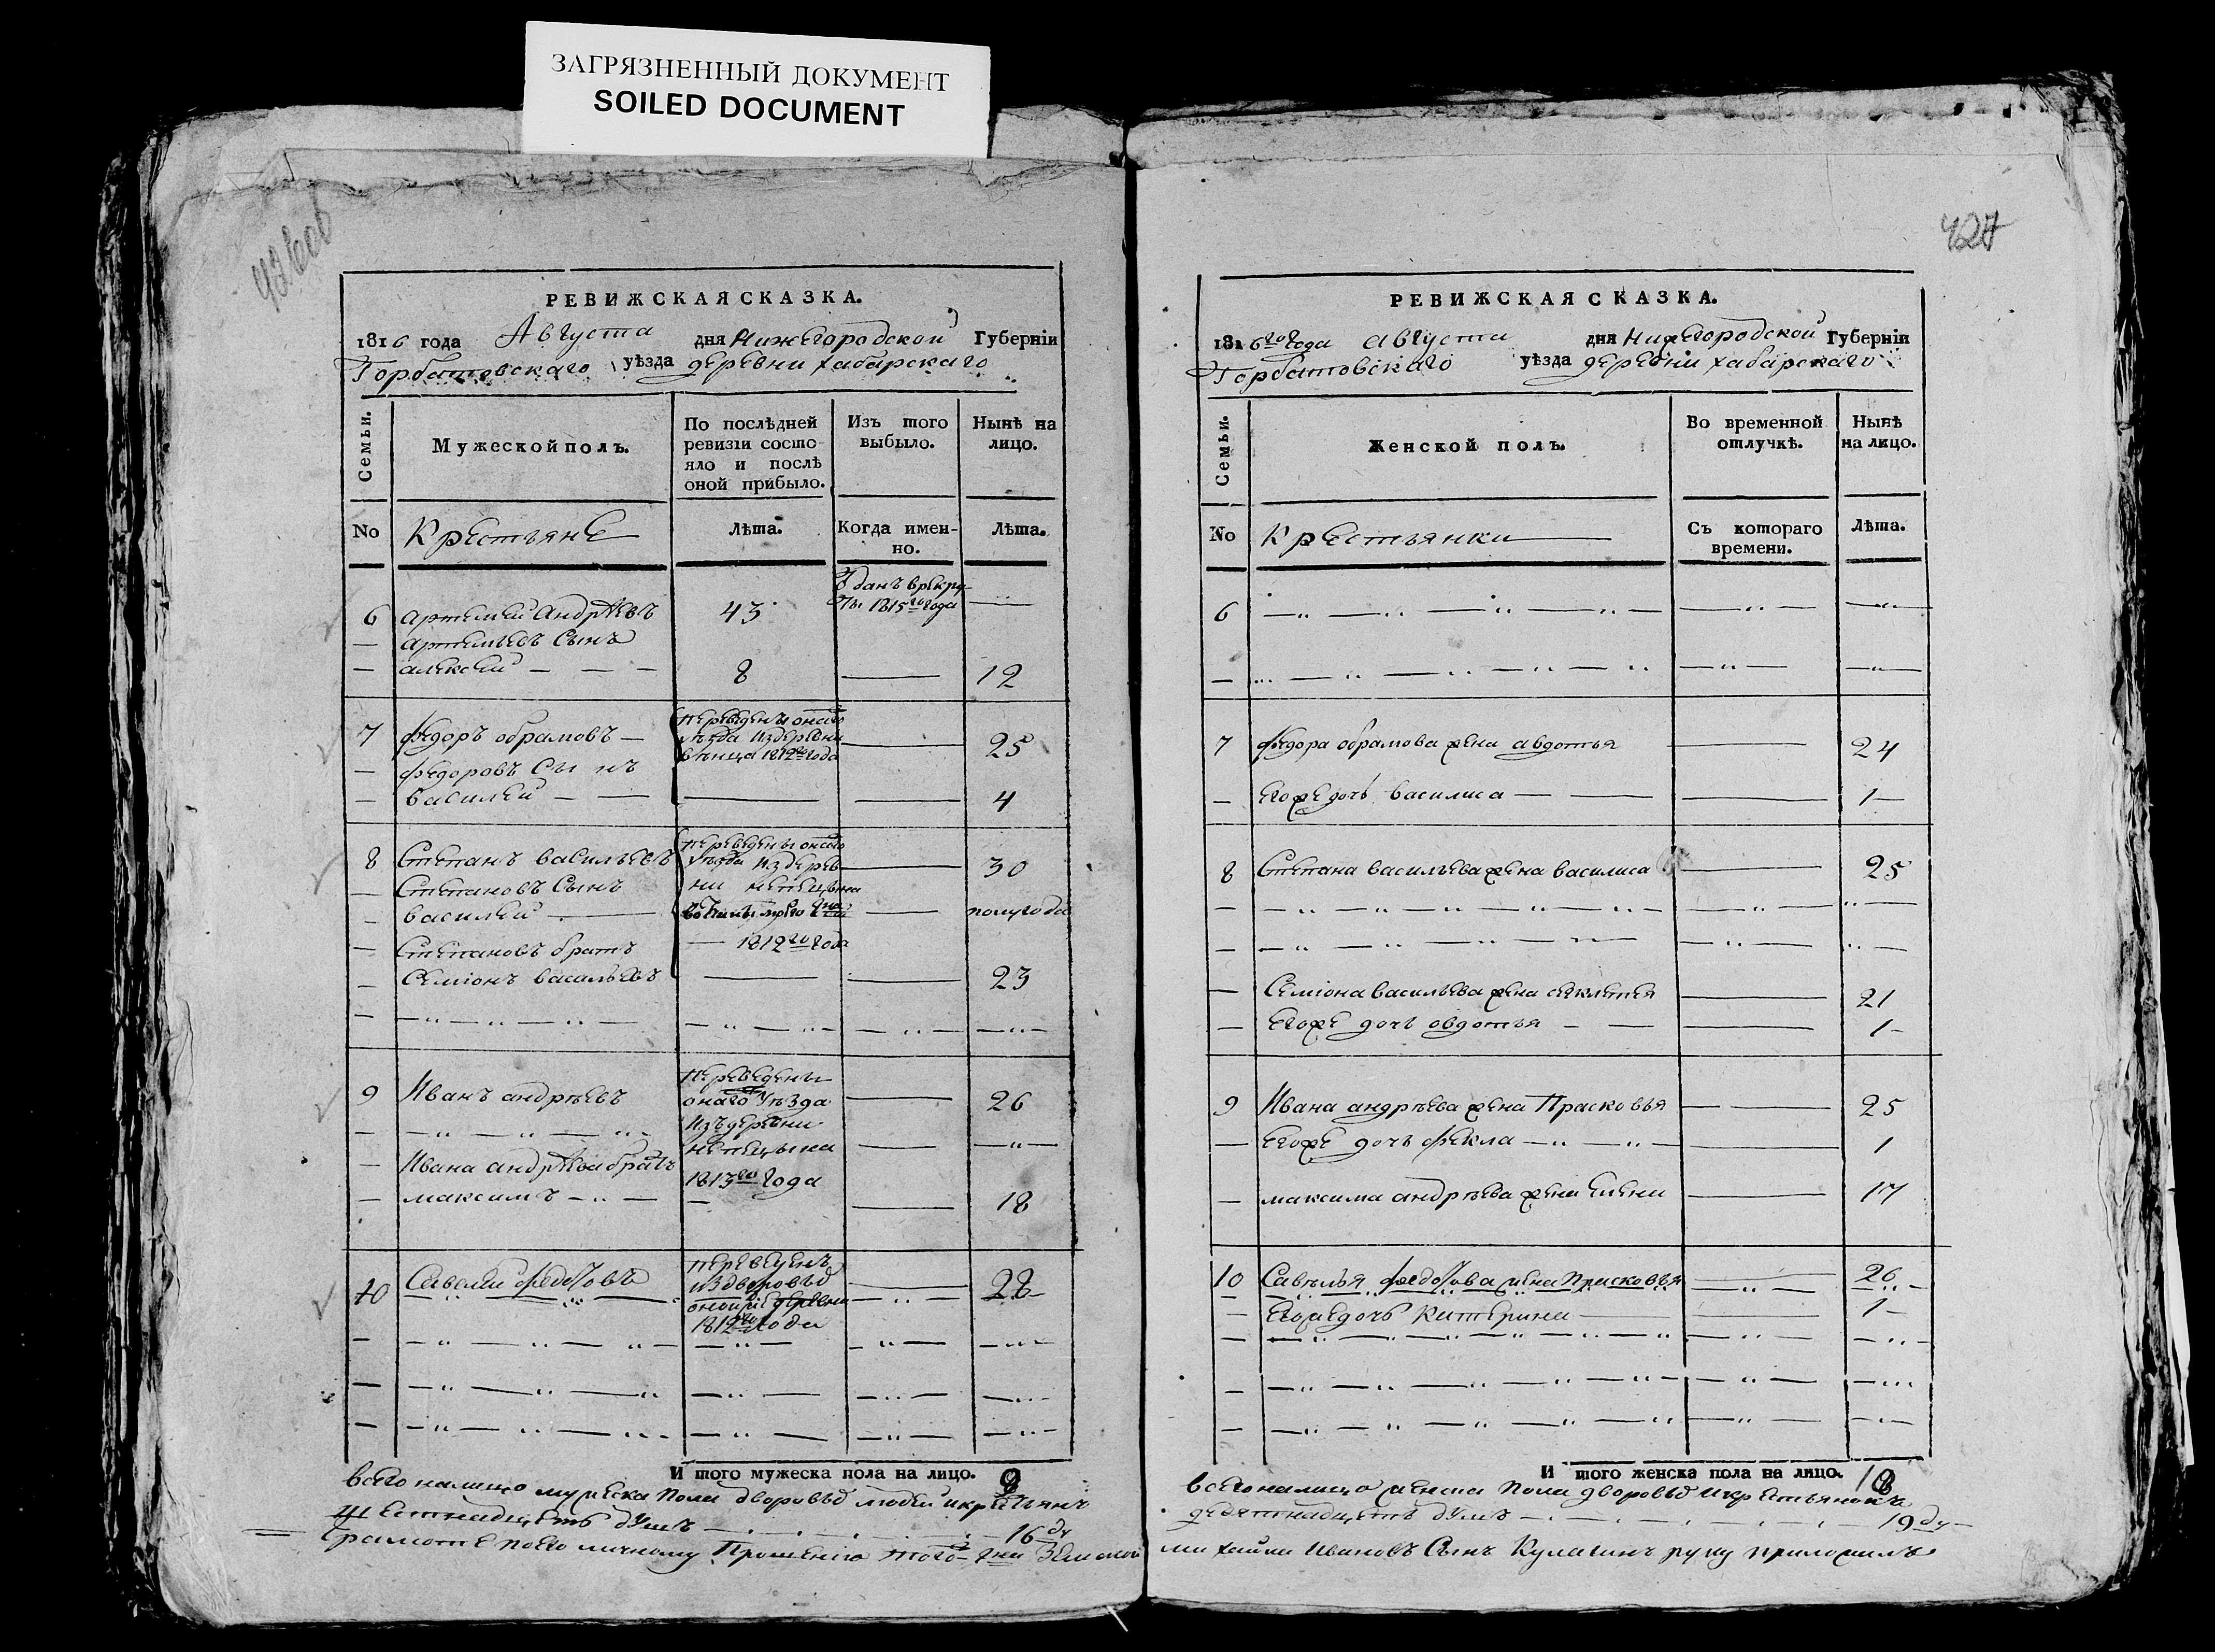 ЗАГРЯЗНЕННЫЙ ДОКУМЕНТ
SOILED DOCUMENT
РЕВИЖСКАЯ СКАЗКА.
1816 года Августа дня Нижегородской Губерніи
Горбатовскаго уѣзда деревни хабарскаго
Семьи.
Мужеской полъ.
По послѣдней ревизіи состо-
яло и послѣ
оной прибыло.
Изъ того
выбыло.
Нынѣ на
лицо.
No Крестьяне Лѣта. Когда имен-
но.
Лѣта.
6 артемей андрѣевъ 43 Зданъ врекру
ты 1815го года
— артемьевъ Сынъ
— алексей — — — 8 — 12
7 федоръ обрамовъ — переведены онаго
уѣзда издеревни
1812го года — 25
— федоровъ Сынъ
— василей — — — — 4
8 Степанъ васильевъ переведены онаго
уѣзда издерев
ни — 30
— Степановъ Сынъ
— василей — — полугода
— Степановъ братъ — 1812го года
— Семіонъ васильевъ — — 23
9 Иванъ андрѣевъ переведены
онаго уѣзда
изъдеревни
1813го года — 26
— Ивана андрѣева братъ
— максимъ — — 18
10 Савелей федотовъ переведенъ
издворовыхъ
оной же деревни
1812го года — 28
И того мужеска пола на лицо. 9
всего налицо мужеска пола дворовыхъ людей икрестьянъ
шестнадцеть душъ — 16 ду
РЕВИЖСКАЯ СКАЗКА.
1816го года августа дня Нижегородской Губерніи
Горбатовскаго уѣзда деревни хабарскаго
427
Семьи.
Женской полъ.
Во временной
отлучкѣ.
Нынѣ
на лицо.
No Крестьянки Съ котораго
времени.
Лѣта.
6
7 федора обрамова жена авдотья — 24
— Егоже дочь василиса — — 1
8 Степана васильева жена василиса — 25
— Семіона васильева жена — 21
— Егоже дочь овдотья — — 1
9 Ивана андрѣева жена Прасковья — 25
— Егоже дочь фекла — 1
— максима андрѣева жена елена — 17
10 Савелья федотова жена Прасковья — 26
— Егоже дочь катерина — 1
И того женска пола на лицо. 10
всего налицо женска пола дворовыхъ икрестьянокъ
деветнадцеть душъ — 19 ду
грамоте поего личному Прошенію Земской михайла Ивановъ Сынъ Кулагинъ руку приложилъ